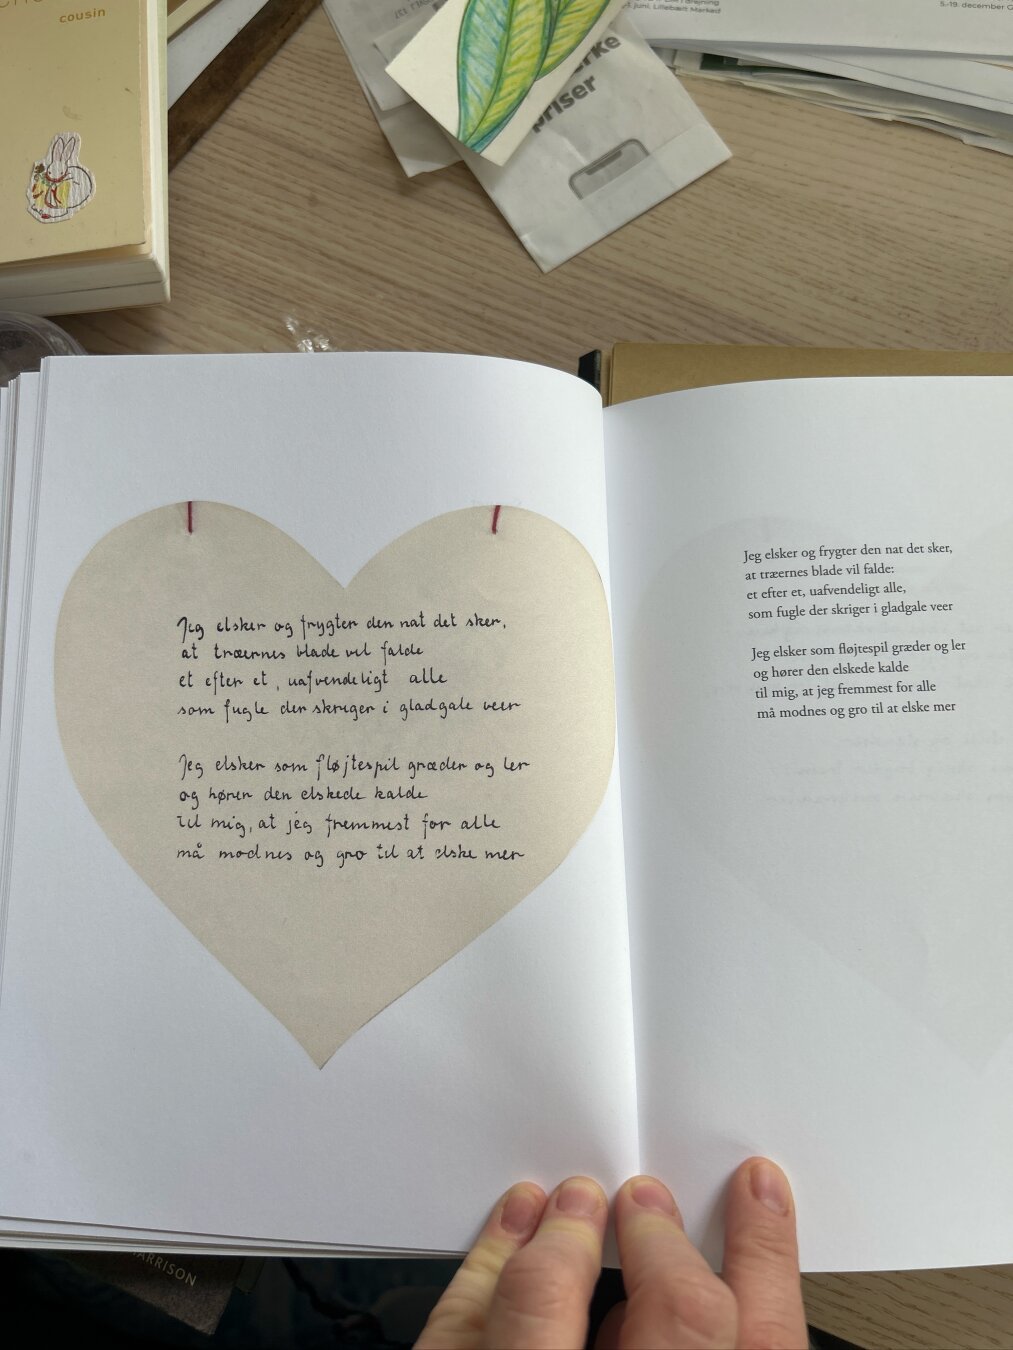 cousin
juni, Lillebælt Marked
5.-19. december
priser
Jeg elsker og frygter den nat det sker,
at træernes blade vil falde
et efter et, uafvendeligt alle
som fugle der skriger i gladgale veer
Jeg elsker som fløjtespil græder og ler
og hører den elskede kalde
til mig, at jeg fremmest for alle
må modnes og gro til at elske mer
Jeg elsker og frygter den nat det sker,
at træernes blade vil falde:
et efter et, uafvendeligt alle,
som fugle der skriger i gladgale veer
Jeg elsker som fløjtespil græder og ler
og hører den elskede kalde
til mig, at jeg fremmest for alle
må modnes og gro til at elske mer
ARRISON